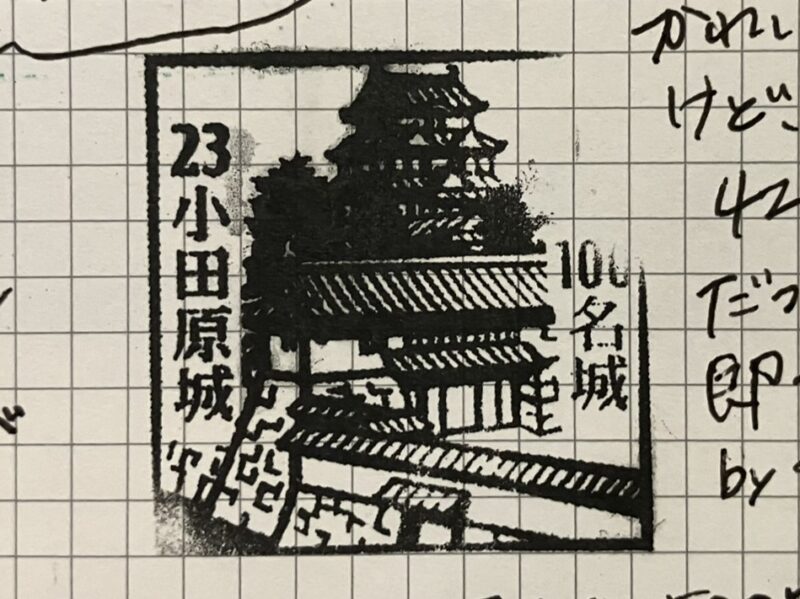 23 小田原城
100名城
かれい
けど、
42
だっ
即
by